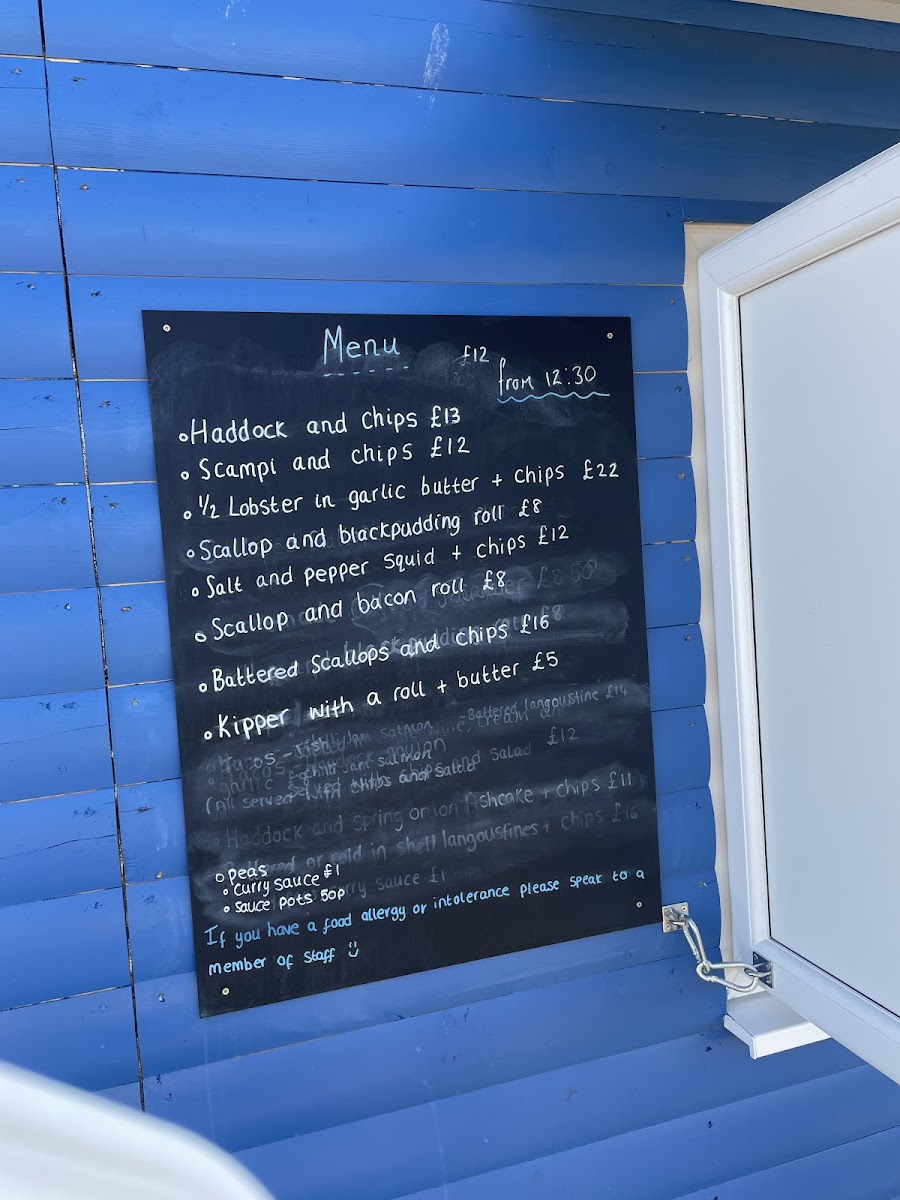 Menu
£12
from 12:30
Haddock and Chips £13
Scampi and chips £12
1/2 Lobster in garlic butter + chips £22
Scallop and blackpudding roll £8
Salt and pepper squid + chips £12
Scallop and bacon roll £8
Battered Scallops and chips £16
Kipper with a roll + butter £5
Battered langoustine £14
Haddock and Spring onion fishcake + chips £11
in shell langoustines + chips £16
peas
curry sauce £1
sauce pots 50p
If you have a food allergy or intolerance please speak to a
member of staff